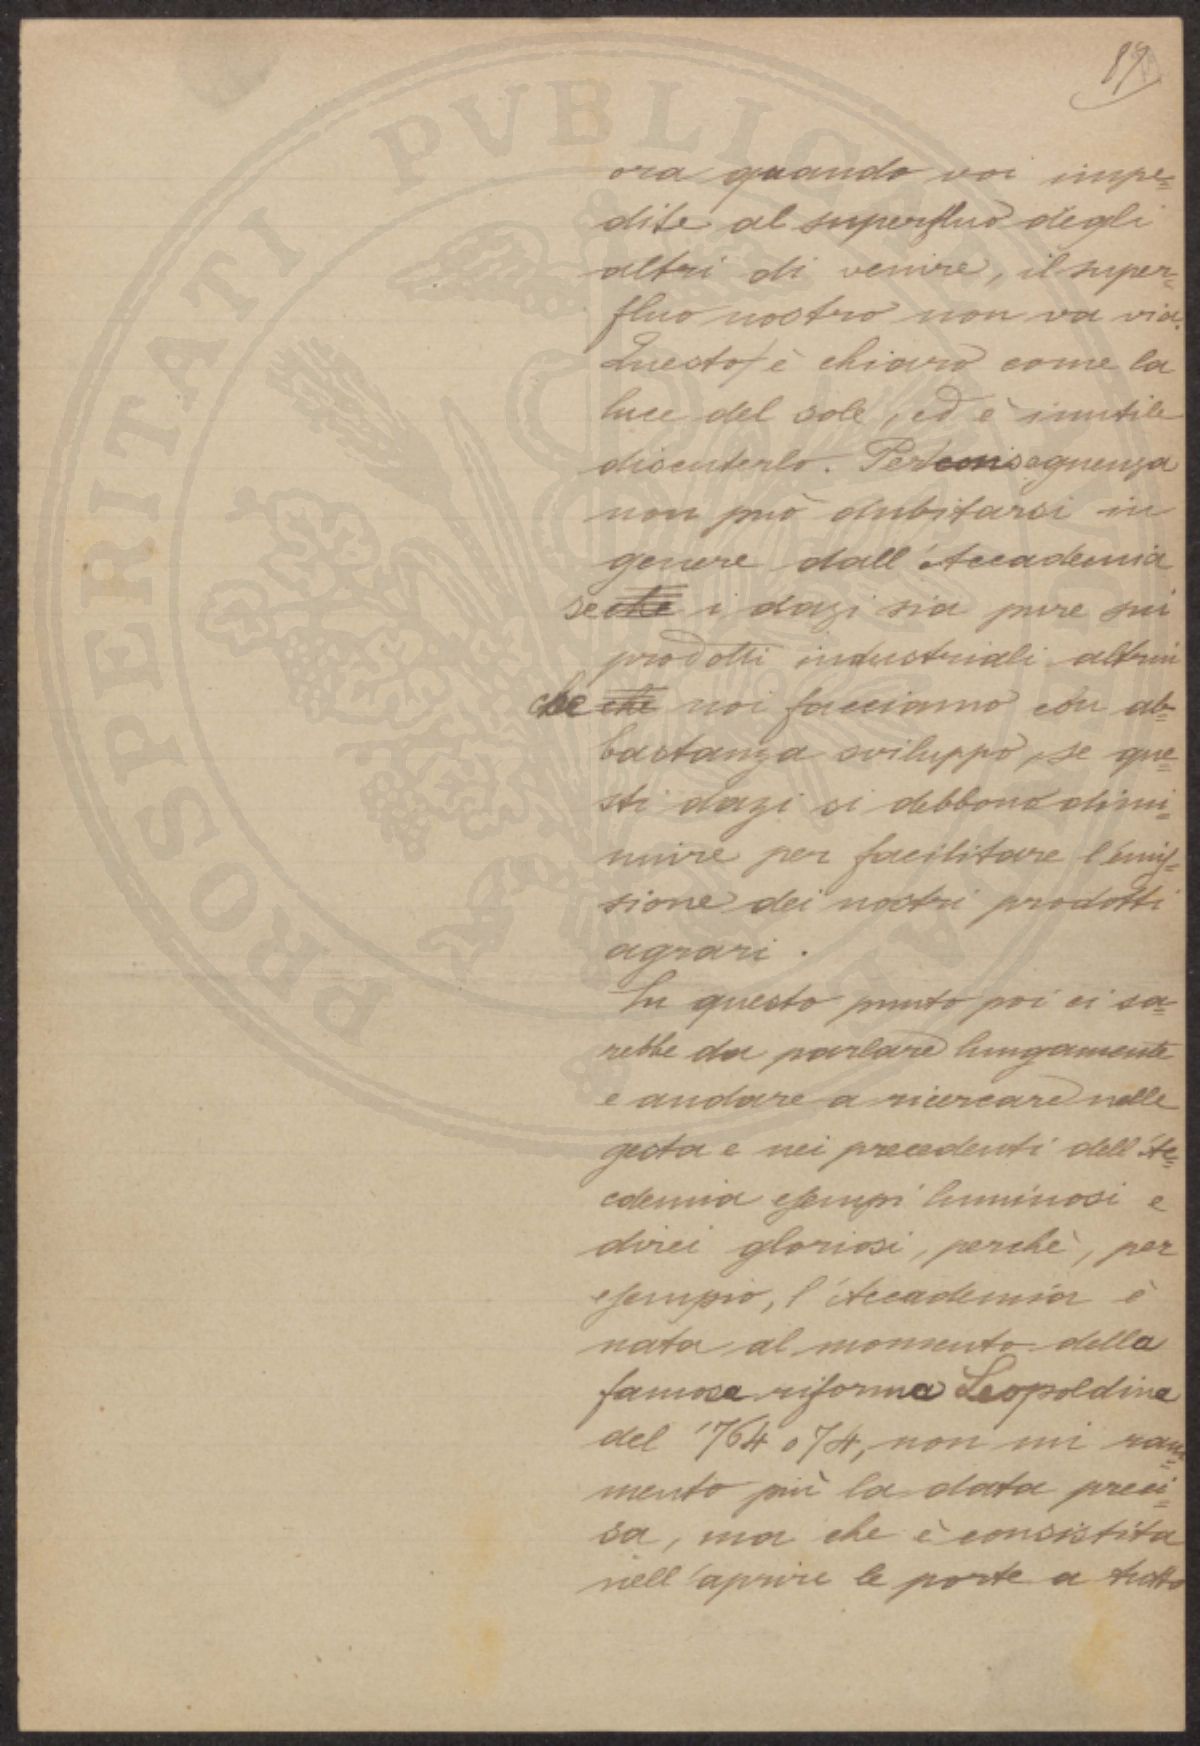 87
ora quando voi impe=
dite al superfluo degli
altri di venire, il super=
fluo nostro non va via.
Questo è chiaro come la
luce del sole, ed è inutile
discuterlo. Per conseguenza
non può dubitarsi in
genere dall'Accademia
se che i dazi sia pure sui
prodotti industriali altrui
che che noi facciamo con ab=
bastanza sviluppo, se que=
sti dazi si debbono dimi=
nuire per facilitare l'emis=
sione dei nostri prodotti
agrari.
In questo punto poi ci sa=
rebbe da parlare lungamente
e andare a ricercare nelle
gesta e nei precedenti dell'Ac=
cademia esempi luminosi e
direi gloriosi, perchè, per
esempio, l'Accademia è
nata al momento della
famosa riforma Leopoldina
del 1764 o 74, non mi ram=
mento più la data preci=
sa, ma che è consistita
nell'aprire le porte a tutto
PROSPERITATI PVBLICAE